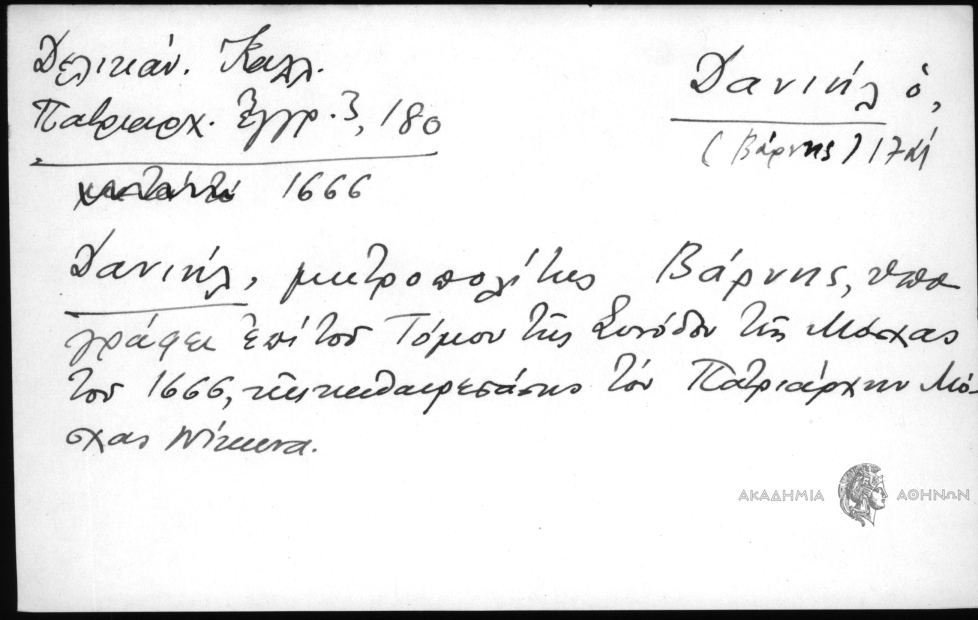 Δελικάν. Καλλ.
Πατριαρχ. Ἔγγρ. 3, 180
Δανιήλ ὁ,
(Βάρνης)
1666
Δανιήλ, μητροπολίτης Βάρνης, ὑπο
γράφει ἐπί τοῦ Τόμου τῆς Συνόδου τῆς Μόσχας
τοῦ 1666, τῆς καθαιρεσάσης τόν Πατριάρχην Μό-
σχας Νίκωνα.
ΑΚΑΔΗΜΙΑ ΑΘΗΝΩΝ